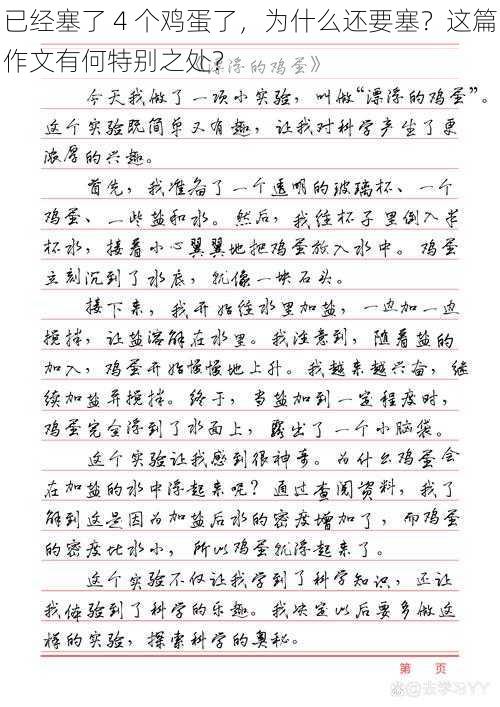 已经塞了4个鸡蛋了，为什么还要塞？这篇
作文有何特别之处？
《漂浮的鸡蛋》
今天我做了一项小实验，叫做“漂浮的鸡蛋”。
这个实验既简单又有趣，让我对科学产生了更
浓厚的兴趣。
首先，我准备了一个透明的玻璃杯、一个
鸡蛋、一些盐和水。然后，我往杯子里倒入半
杯水，接着小心翼翼地把鸡蛋放入水中。鸡蛋
立刻沉到了水底，就像一块石头。
接下来，我开始往水里加盐，一边加一边
搅拌，让盐溶解在水里。我注意到，随着盐的
加入，鸡蛋开始慢慢地上升。我越来越兴奋，继
续加盐并搅拌。终于，当盐加到一定程度时，
鸡蛋完全浮到了水面上，露出了一个小脑袋。
这个实验让我感到很神奇。为什么鸡蛋会
在加盐的水中浮起来呢？通过查阅资料，我了
解到这是因为加盐后水的密度增加了，而鸡蛋
的密度比水小，所以鸡蛋就浮起来了。
这个实验不仅让我学到了科学知识，还让
我体验到了科学的乐趣。我决定以后要多做这
样的实验，探索科学的奥秘。
第 页
@去学习YY